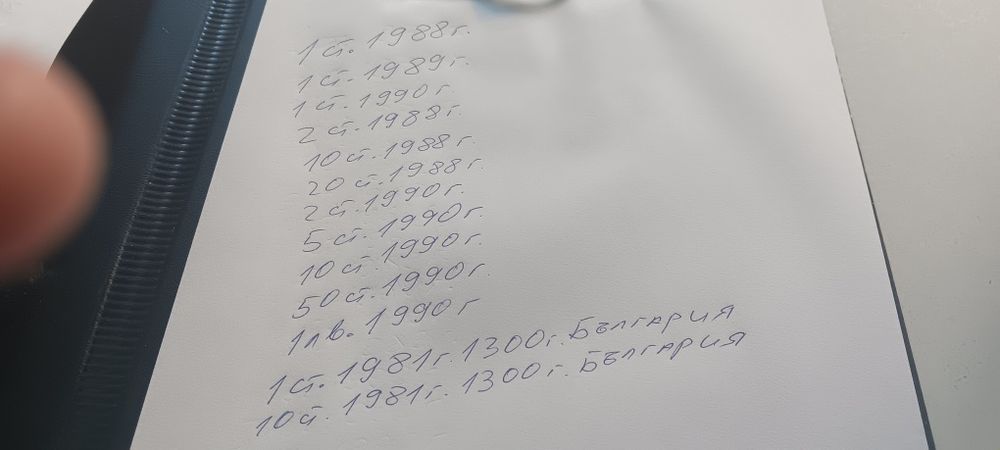 1 ст. 1988 г.
1 ст. 1989 г.
1 ст. 1990 г.
2 ст. 1988 г.
10 ст. 1988 г.
20 ст. 1988 г.
2 ст. 1990 г.
5 ст. 1990 г.
10 ст. 1990 г.
50 ст. 1990 г.
1 лв. 1990 г
1 ст. 1981 г. 1300 г. България
10 ст. 1981 г. 1300 г. България